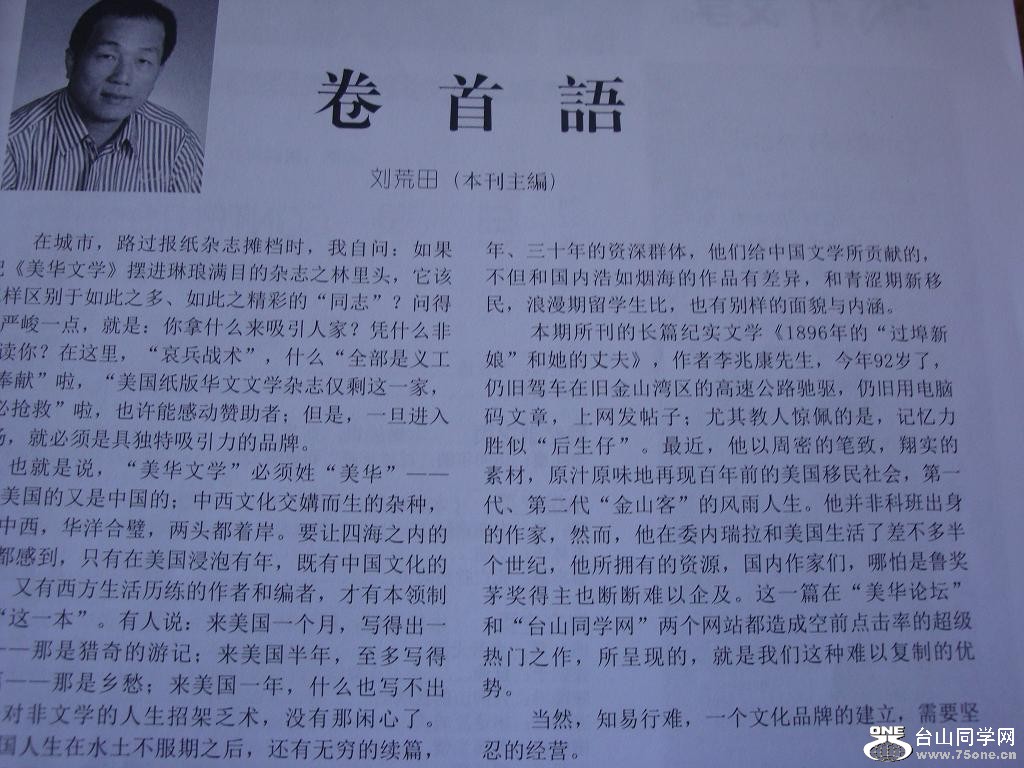 卷首語
刘荒田（本刊主编）
在城市，路过报纸杂志摊档时，我自问：如果
《美华文学》摆进琳琅满目的杂志之林里头，它该
样区别于如此之多、如此之精彩的“同志”？问得
严峻一点，就是：你拿什么来吸引人家？凭什么非
读你？在这里，“哀兵战术”，什么“全部是义工
奉献”啦，“美国纸版华文文学杂志仅剩这一家，
必抢救”啦，也许能感动赞助者；但是，一旦进入
场，就必须是具独特吸引力的品牌。
也就是说，“美华文学”必须姓“美华”——
美国的又是中国的；中西文化交媾而生的杂种，
中西，华洋合璧，两头都着岸。要让四海之内的
都感到，只有在美国浸泡有年，既有中国文化的
又有西方生活历练的作者和编者，才有本领制
“这一本”。有人说：来美国一个月，写得出一
——那是猎奇的游记；来美国半年，至多写得
——那是乡愁；来美国一年，什么也写不出
对非文学的人生招架乏术，没有那闲心了。
国人生在水土不服期之后，还有无穷的续篇，
年、三十年的资深群体，他们给中国文学所贡献的，
不但和国内浩如烟海的作品有差异，和青涩期新移
民，浪漫期留学生比，也有别样的面貌与内涵。
本期所刊的长篇纪实文学《1896年的“过埠新
娘”和她的丈夫》，作者李兆康先生，今年92岁了，
仍旧驾车在旧金山湾区的高速公路驰驱，仍旧用电脑
码文章，上网发帖子；尤其教人惊佩的是，记忆力
胜似“后生仔”。最近，他以周密的笔致，翔实的
素材，原汁原味地再现百年前的美国移民社会，第一
代、第二代“金山客”的风雨人生。他并非科班出身
的作家，然而，他在委内瑞拉和美国生活了差不多半
个世纪，他所拥有的资源，国内作家们，哪怕是鲁奖
茅奖得主也断断难以企及。这一篇在“美华论坛”
和“台山同学网”两个网站都造成空前点击率的超级
热门之作，所呈现的，就是我们这种难以复制的优
势。
当然，知易行难，一个文化品牌的建立，需要坚
忍的经营。
ONE
台山同学网
www.75one.cn